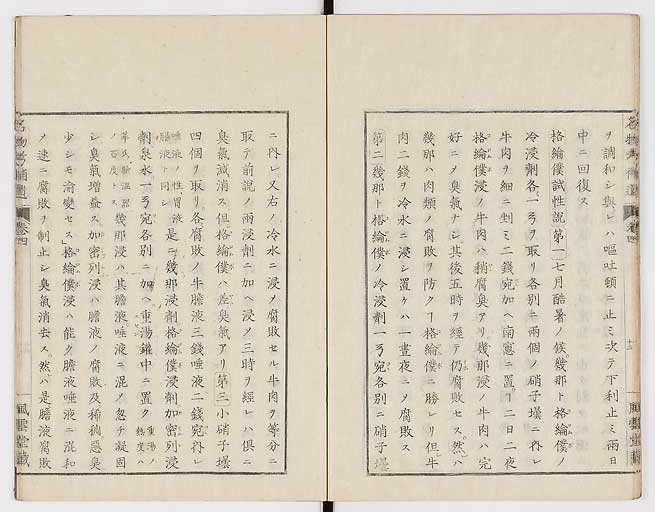 ヲ調和シ與レハ嘔吐頓ニ止ミ次テ下利止ミ兩日
中ニ回復ス
格綸僕試性説第一七月酷暑ノ候幾那ト格綸僕ノ
冷浸劑各一弓ヲ取リ各別ニ兩個ノ硝子壜ニ內レ
牛肉ヲ細ニ剉ミ二錢宛加ヘ南窻ニ置ク二日二夜
格綸僕浸ノ牛肉ハ稍腐臭アリ幾那浸ノ牛肉ハ完
好ニノ臭氣ナシ其後五時ヲ經テ仍腐敗セス然ハ
幾那ハ肉類ノ腐敗ヲ防ク格綸僕ニ勝レリ但牛
肉二錢ヲ冷水ニ浸シ置ケハ一晝夜ニノ腐敗ス
第二幾那ト格綸僕ノ冷浸劑一弓宛各別ニ硝子壜
名物考補遺 卷四 風雲堂藏
ニ內レ又右ノ冷水ニ浸ノ腐敗セル牛肉ヲ等分ニ
取テ前說ノ兩浸劑ニ加ヘ浸ノ三時ヲ經レハ俱ニ
臭氣減消ス但格綸僕ハ差臭氣アリ第三小硝子壜
四個ヲ取リ各腐敗ノ牛膽液三錢唾液二錢宛內レ
唾液ノ性胃液膽液ト同シ是ニ幾那浸劑格綸僕浸劑加密列浸
劑泉水一弓宛各別ニ加ヘ重湯鑵中ニ置ク重湯ノ熱度ハ
華氏驗溫器ノ百度トス幾那浸ハ其膽液唾液ニ混ノ忽チ凝固
シ臭氣增益ス加密列浸ハ膽液ノ腐敗及稀稠惡臭
少シモ渝變セス格綸僕浸ハ能ク膽液唾液ニ混和
ノ速ニ腐敗ヲ制止シ臭氣消去ス然ハ是膽液腐敗
名物考補遺 卷四 風雲堂藏